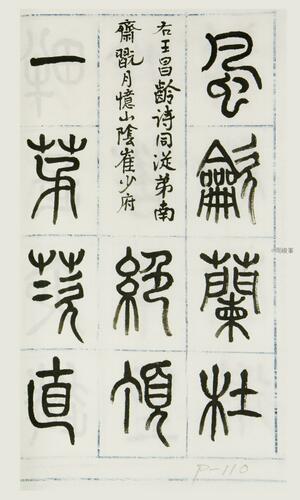 風龡蘭杜
右王昌齡詩同從弟南
齋翫月憶山陰崔少府
絕頂
一茅茨直
P-110